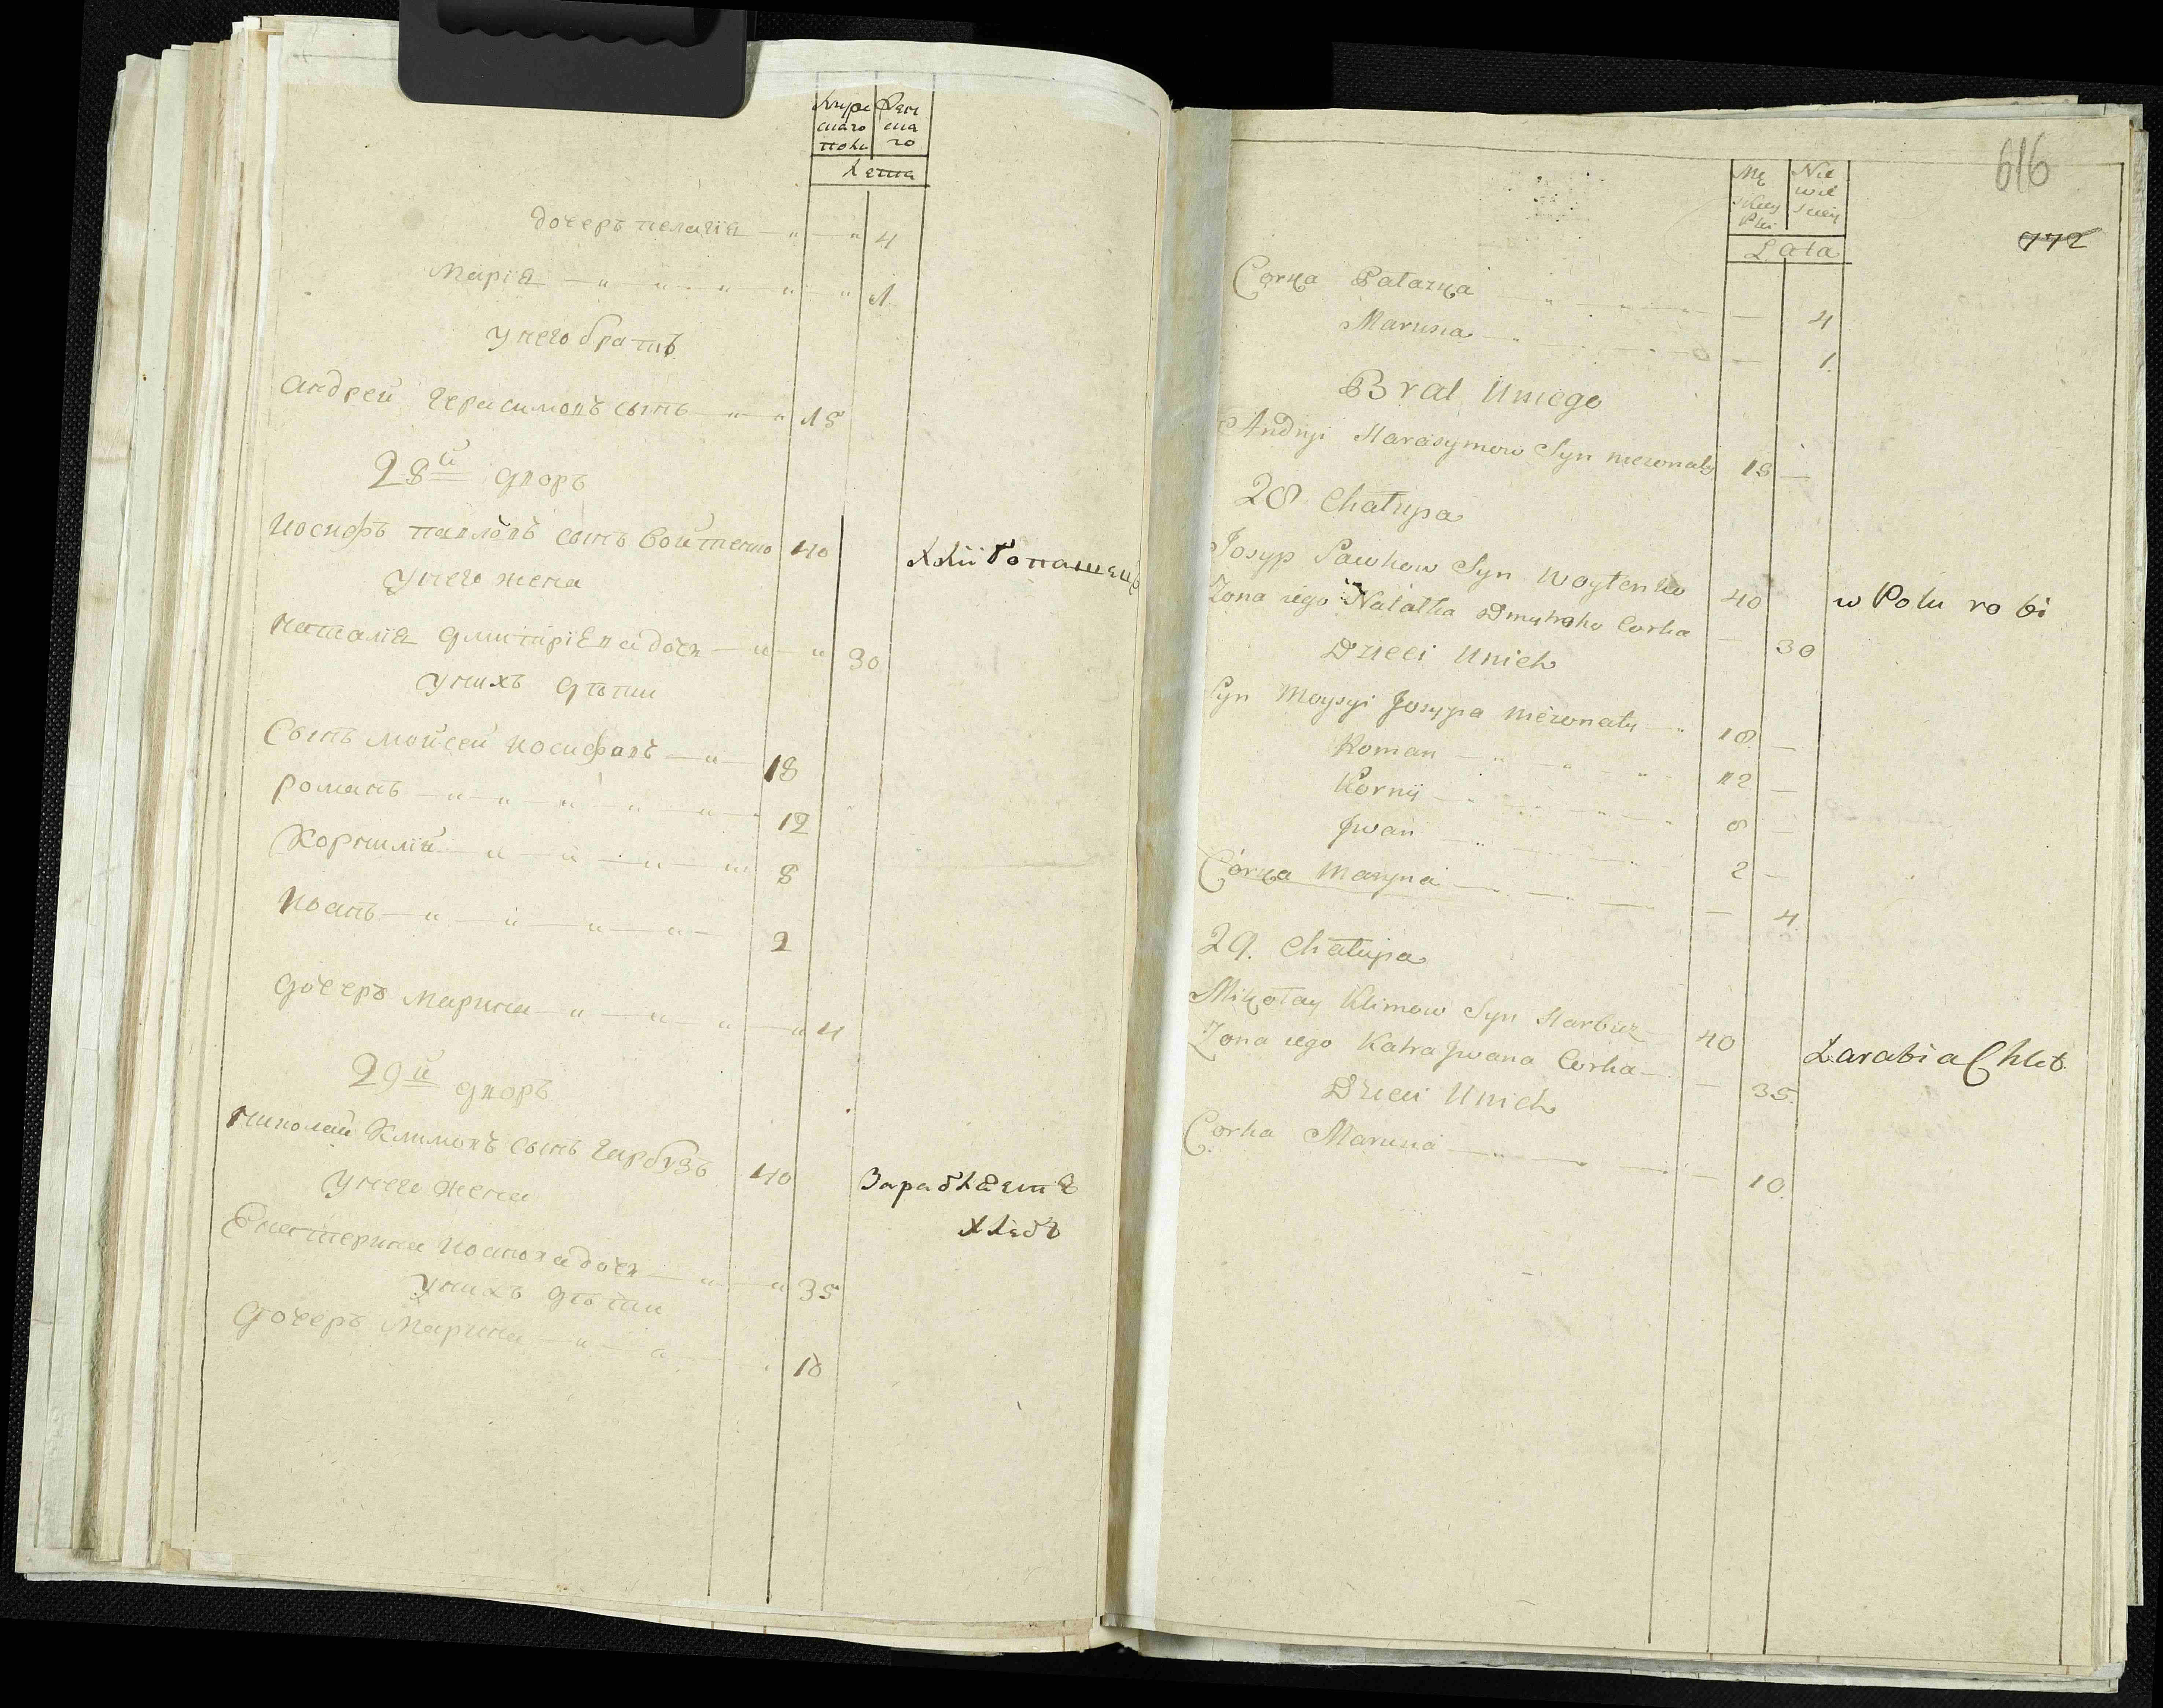 лета
дочеръ пелагіа 4
Маріа 1
у него братъ
андрей герасимовъ сынъ 15
28й дворъ
иосифъ павловъ сынъ войтенко 40 хлѣбопашецъ
у него жена
наталіа дмитріева дочь 30
у нихъ дѣти
Сынъ мойсей иосифовъ 18
романъ 12
Корнилій 8
иоанъ 2
дочеръ марина 4
29й дворъ
николай Климовъ сынъ гарбузъ 40 зарабляетъ
у него жена хлѣбъ
Екатерина иоанова дочь 35
у нихъ дѣти
дочеръ Марина 10
616
Mę Nie
skiey wie
Płci sciey
Lata 772
Corka Palazka — 4
Marusia — 1.
Brat Uniego
Andryi Harasymow Syn nieżonaty 15 —
28 Chałupa
Josyp Pawlow Syn Woytenko 40 w Polu robi
Zona iego Natalka Dmytroha Corka — 30
Dzieci Unich
Syn Moysyi Josypa nieżonaty 18 —
Roman 12 —
Kornij 8
Jwan 2 —
Córka Maryna — 4
29. Chałupa
Mikołay Klimow Syn Harbuz 40 Zarabia Chleb.
Zona iego Katra Jwana Corka — 35.
Dzieci Unich
Corka Marusia — 10.